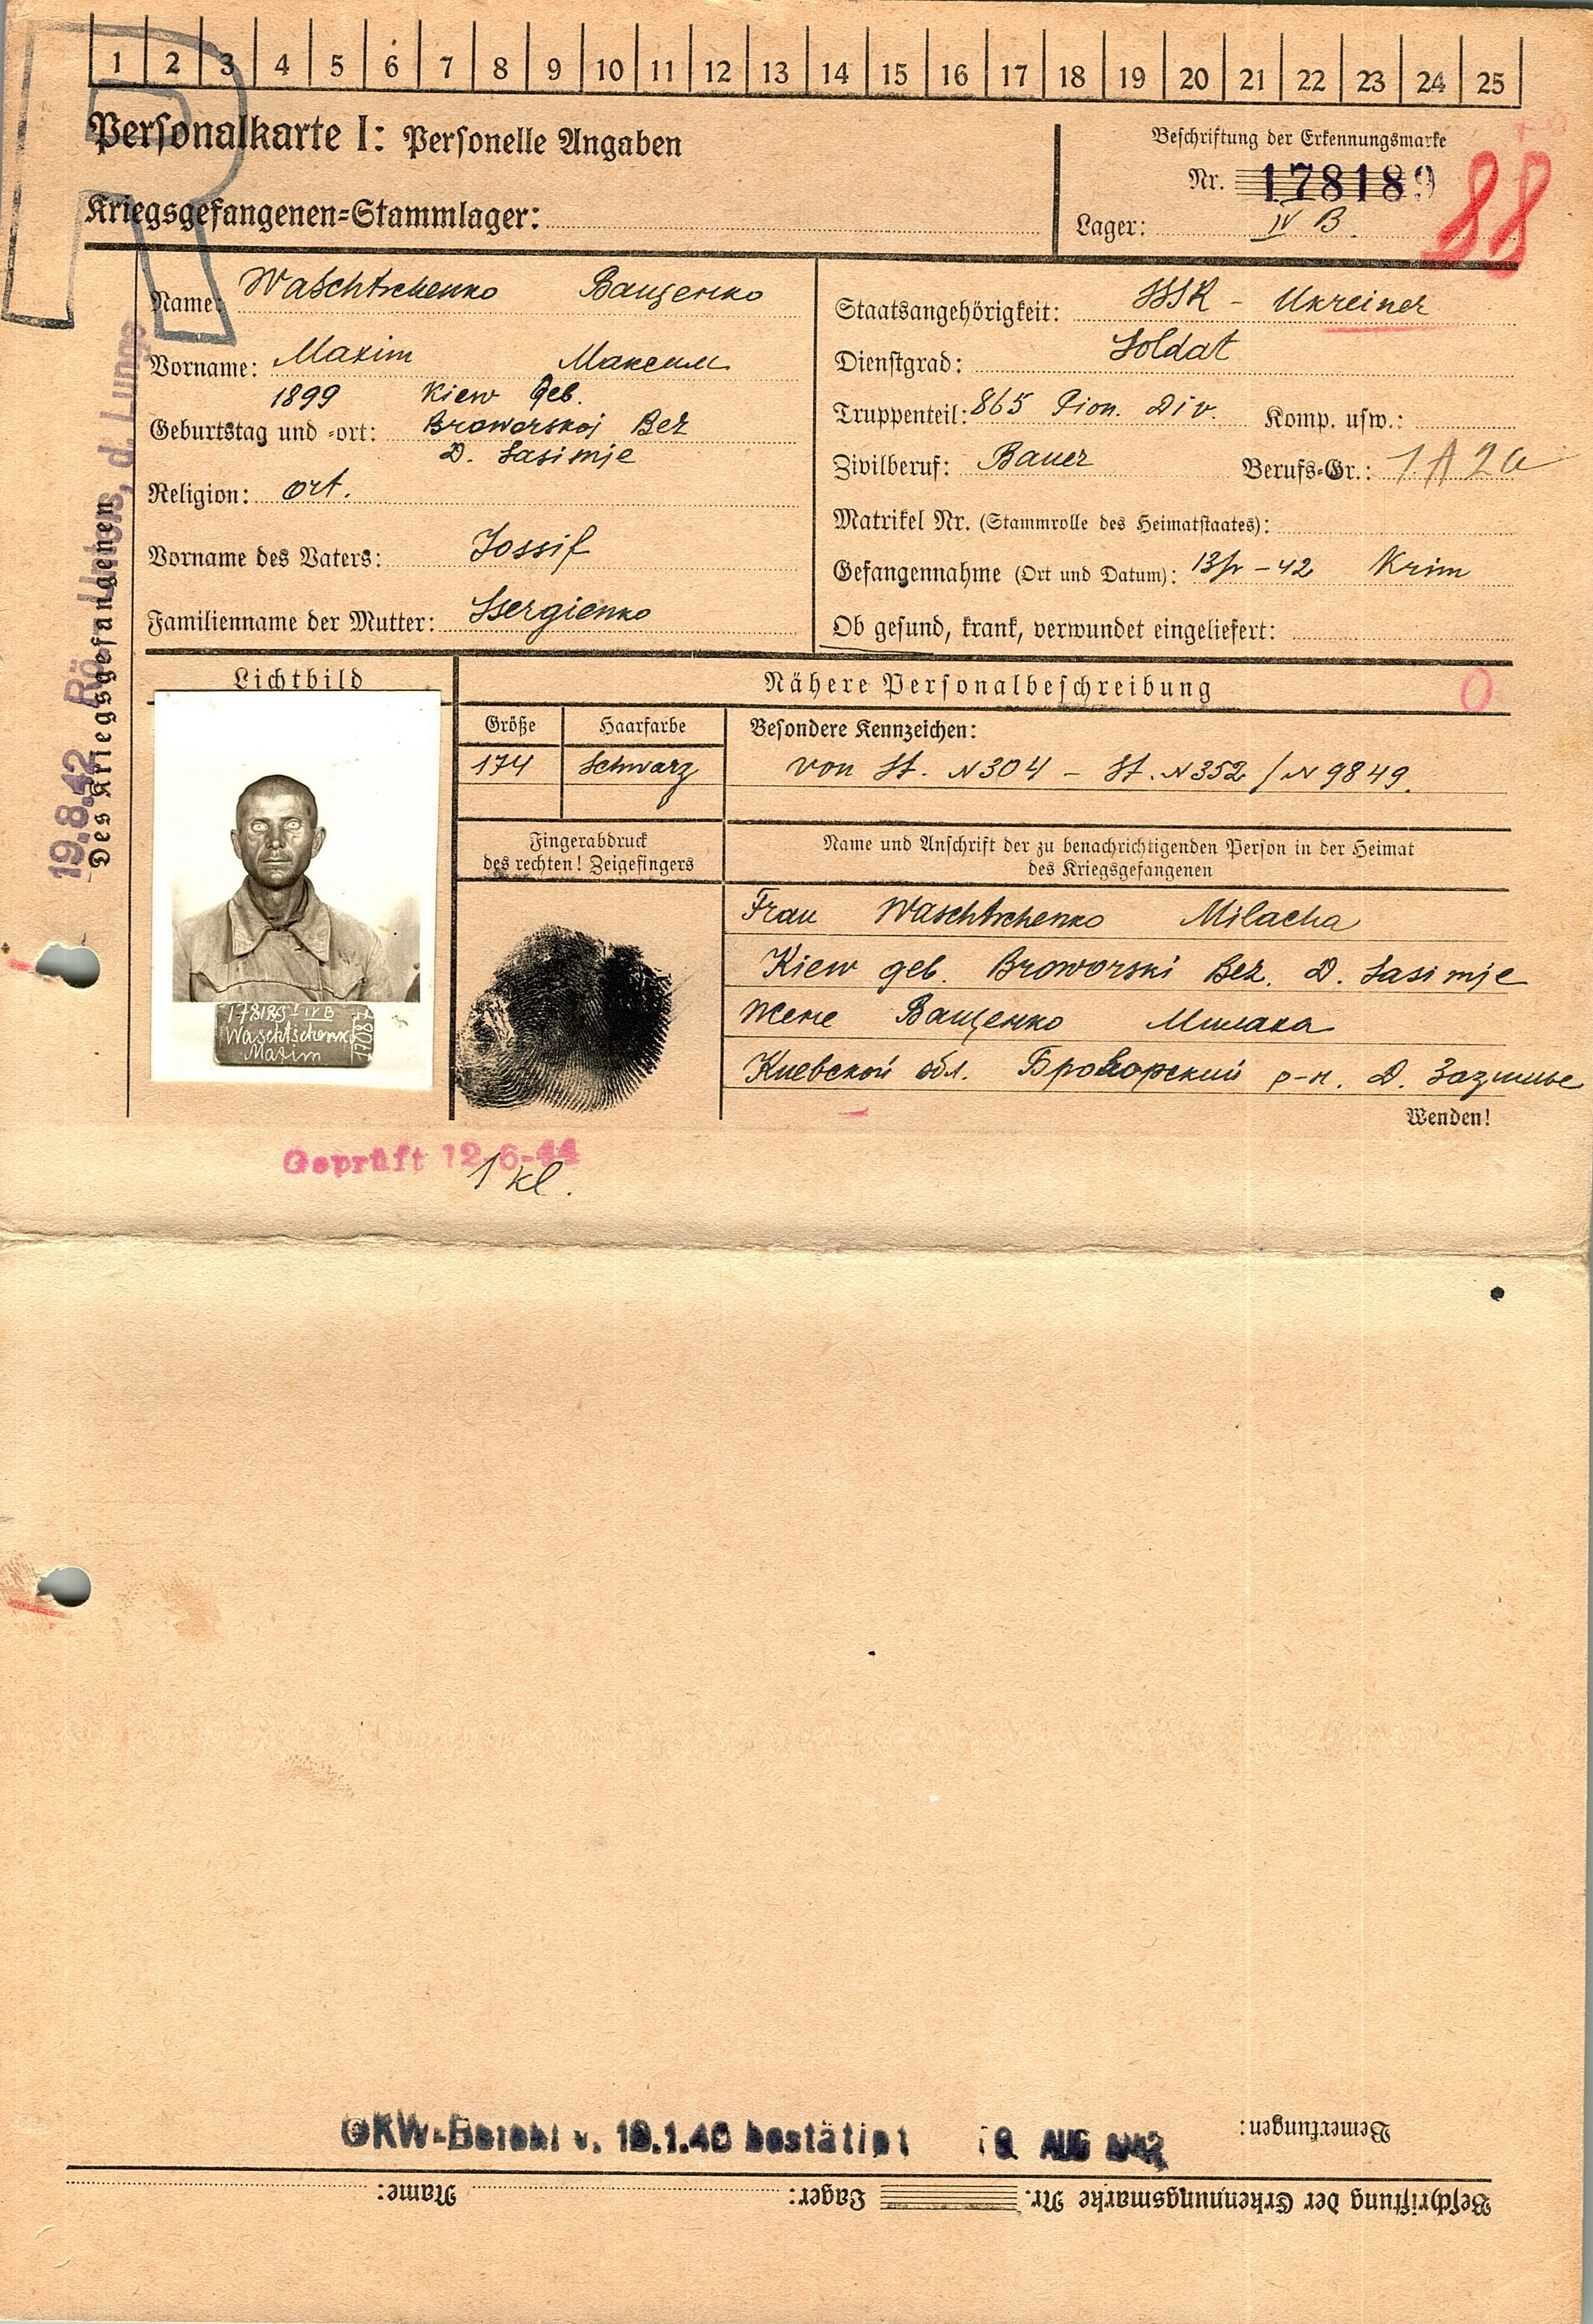 1 2 3 4 5 6 7 8 9 10 11 12 13 14 15 16 17 18 19 20 21 22 23 24 25
R
Personalkarte I: Personelle Angaben
Kriegsgefangenen=Stammlager:
Beschriftung der Erkennungsmarke
Nr. 178189
Lager: IV B.
88
Name: Waschtschenko Ващенко
Vorname: Maxim Максим
1899 Kiew Geb.
Geburtstag und =ort: Broworskoj Bez
D. Sasimje
Religion: ort.
Vorname des Vaters: Jossif
Familienname der Mutter: Ssergienko
Staatsangehörigkeit: SSSR - Ukreiner
Dienstgrad: Soldat
Truppenteil: 865 Pion. Div. Komp. usw.:
Zivilberuf: Bauer Berufs=Gr.: 1 A 2a
Matrikel Nr. (Stammrolle des Heimatstaates):
Gefangennahme (Ort und Datum): 13/V - 42 Krim
Ob gesund, krank, verwundet eingeliefert:
19.8.42 Rö. d. Lunge
Des Kriegsgefangenen
Lichtbild
Nähere Personalbeschreibung
0
Größe Haarfarbe Besondere Kennzeichen:
174 Schwarz von St. N 304 - St. N 352 / N 9849.
Fingerabdruck
des rechten! Zeigefingers
Name und Anschrift der zu benachrichtigenden Person in der Heimat
des Kriegsgefangenen
Frau Waschtschenko Milacha
Kiew geb. Broworski Bez. D. Sasimje
Жене Ващенко Милаха
Киевской обл. Броворский р-н. Д. Зазимье
178189 IV B
Waschtschenko
Maxim
Wenden!
Geprüft 12-6-44
1 kl.
Bemerkungen:
OKW-Befehl v. 10.1.40 bestätigt 19. AUG 1942
Beschriftung der Erkennungsmarke Nr. Lager: Name: